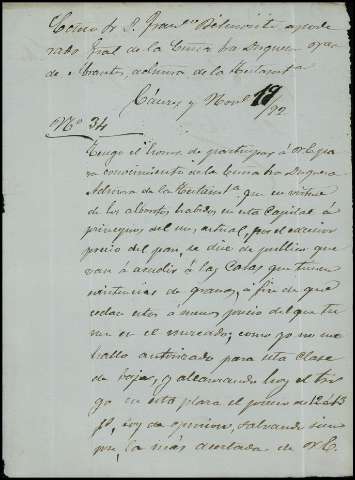 Excmo Sr D. Franco Belmonte apode
rado Gral de la Excma Sra Duquesa
de Abrantes, admora de la
Cáceres y Novbe 19/92
No 34
Tengo el honor de participar á V.E. pa
ra conocimiento de la Excma Sra Duquesa
Admora de la que en virtud
de los alborotos habidos en esta Capital á
principios del mes actual, por el excesivo
precio del pan, se dice de público que
van á acudir á las Casas que tienen
existencias de granos, á fin de que
cedan estos á menos precio del que tie
nen en el mercado; como yo no me
hallo autorizado para esta clase
de bajas, y alcanzando hoy el tri
go en esta plaza el precio de 12 á 13
ptas, soy de opinion, salvando siem
pre, la más acertada de V.E.